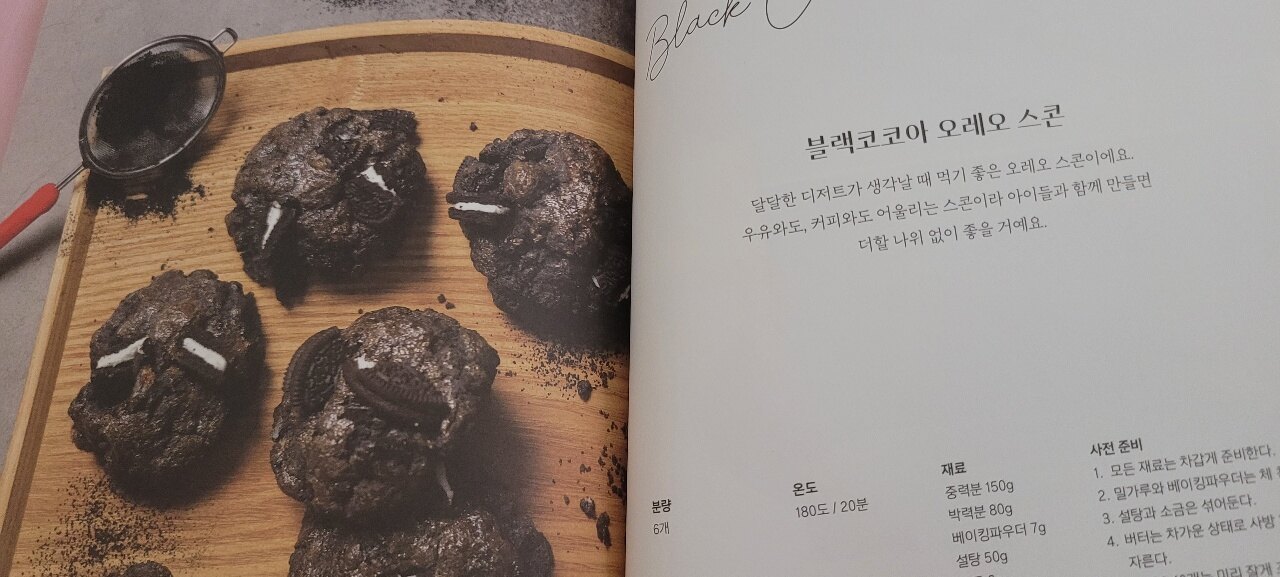 Black
블랙코코아 오레오 스콘
달달한 디저트가 생각날 때 먹기 좋은 오레오 스콘이에요.
우유와도, 커피와도 어울리는 스콘이라 아이들과 함께 만들면
더할 나위 없이 좋을 거예요.
분량
6개
온도
180도 / 20분
재료
중력분 150g
박력분 80g
베이킹파우더 7g
설탕 50g
사전 준비
1. 모든 재료는 차갑게 준비한다.
2. 밀가루와 베이킹파우더는 체
3. 설탕과 소금은 섞어둔다.
4. 버터는 차가운 상태로 사방
자른다.
미리 잘게